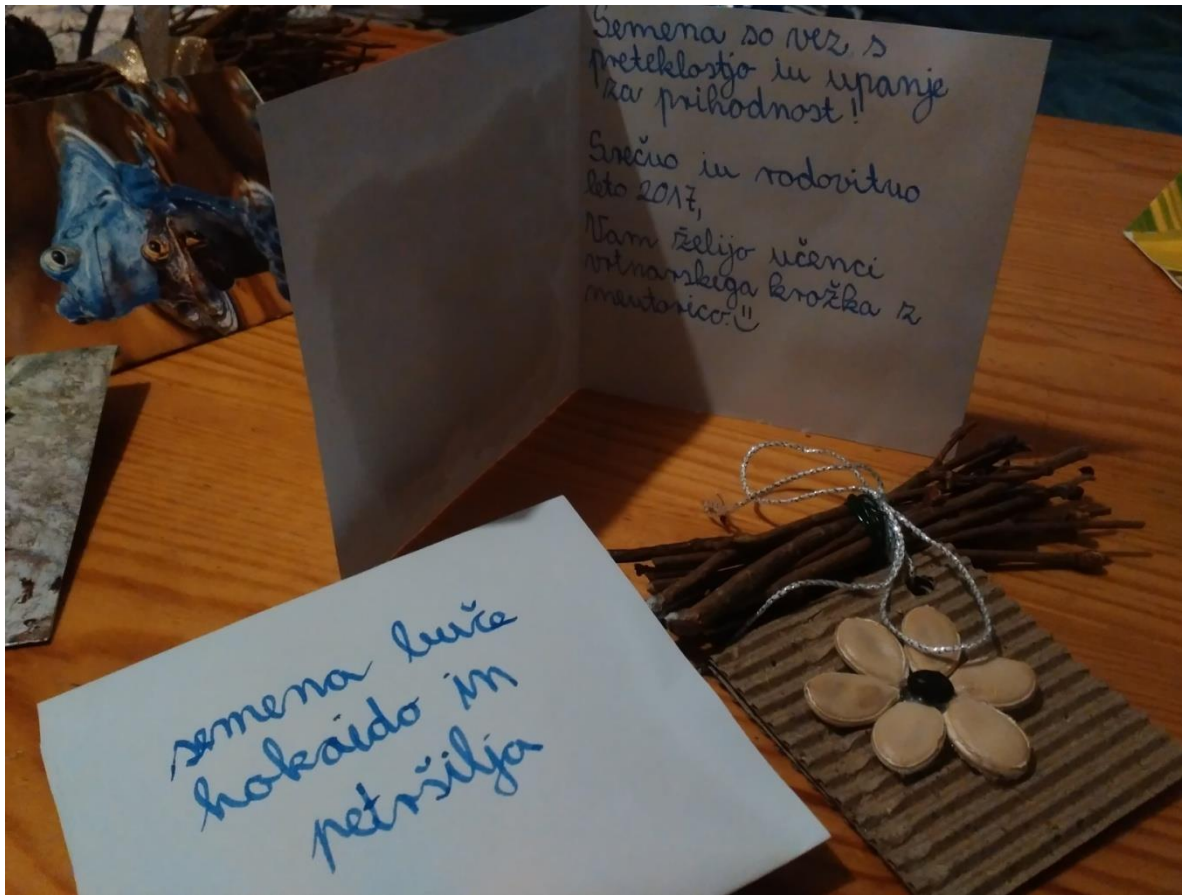 Semena so vez s
preteklostjo in upanje
za prihodnost!!
Srečno in rodovitno
leto 2017,
Vam želijo učenci
vrtnarskega krožka z
mentorico.
semena buče
hokaido in
petršilja